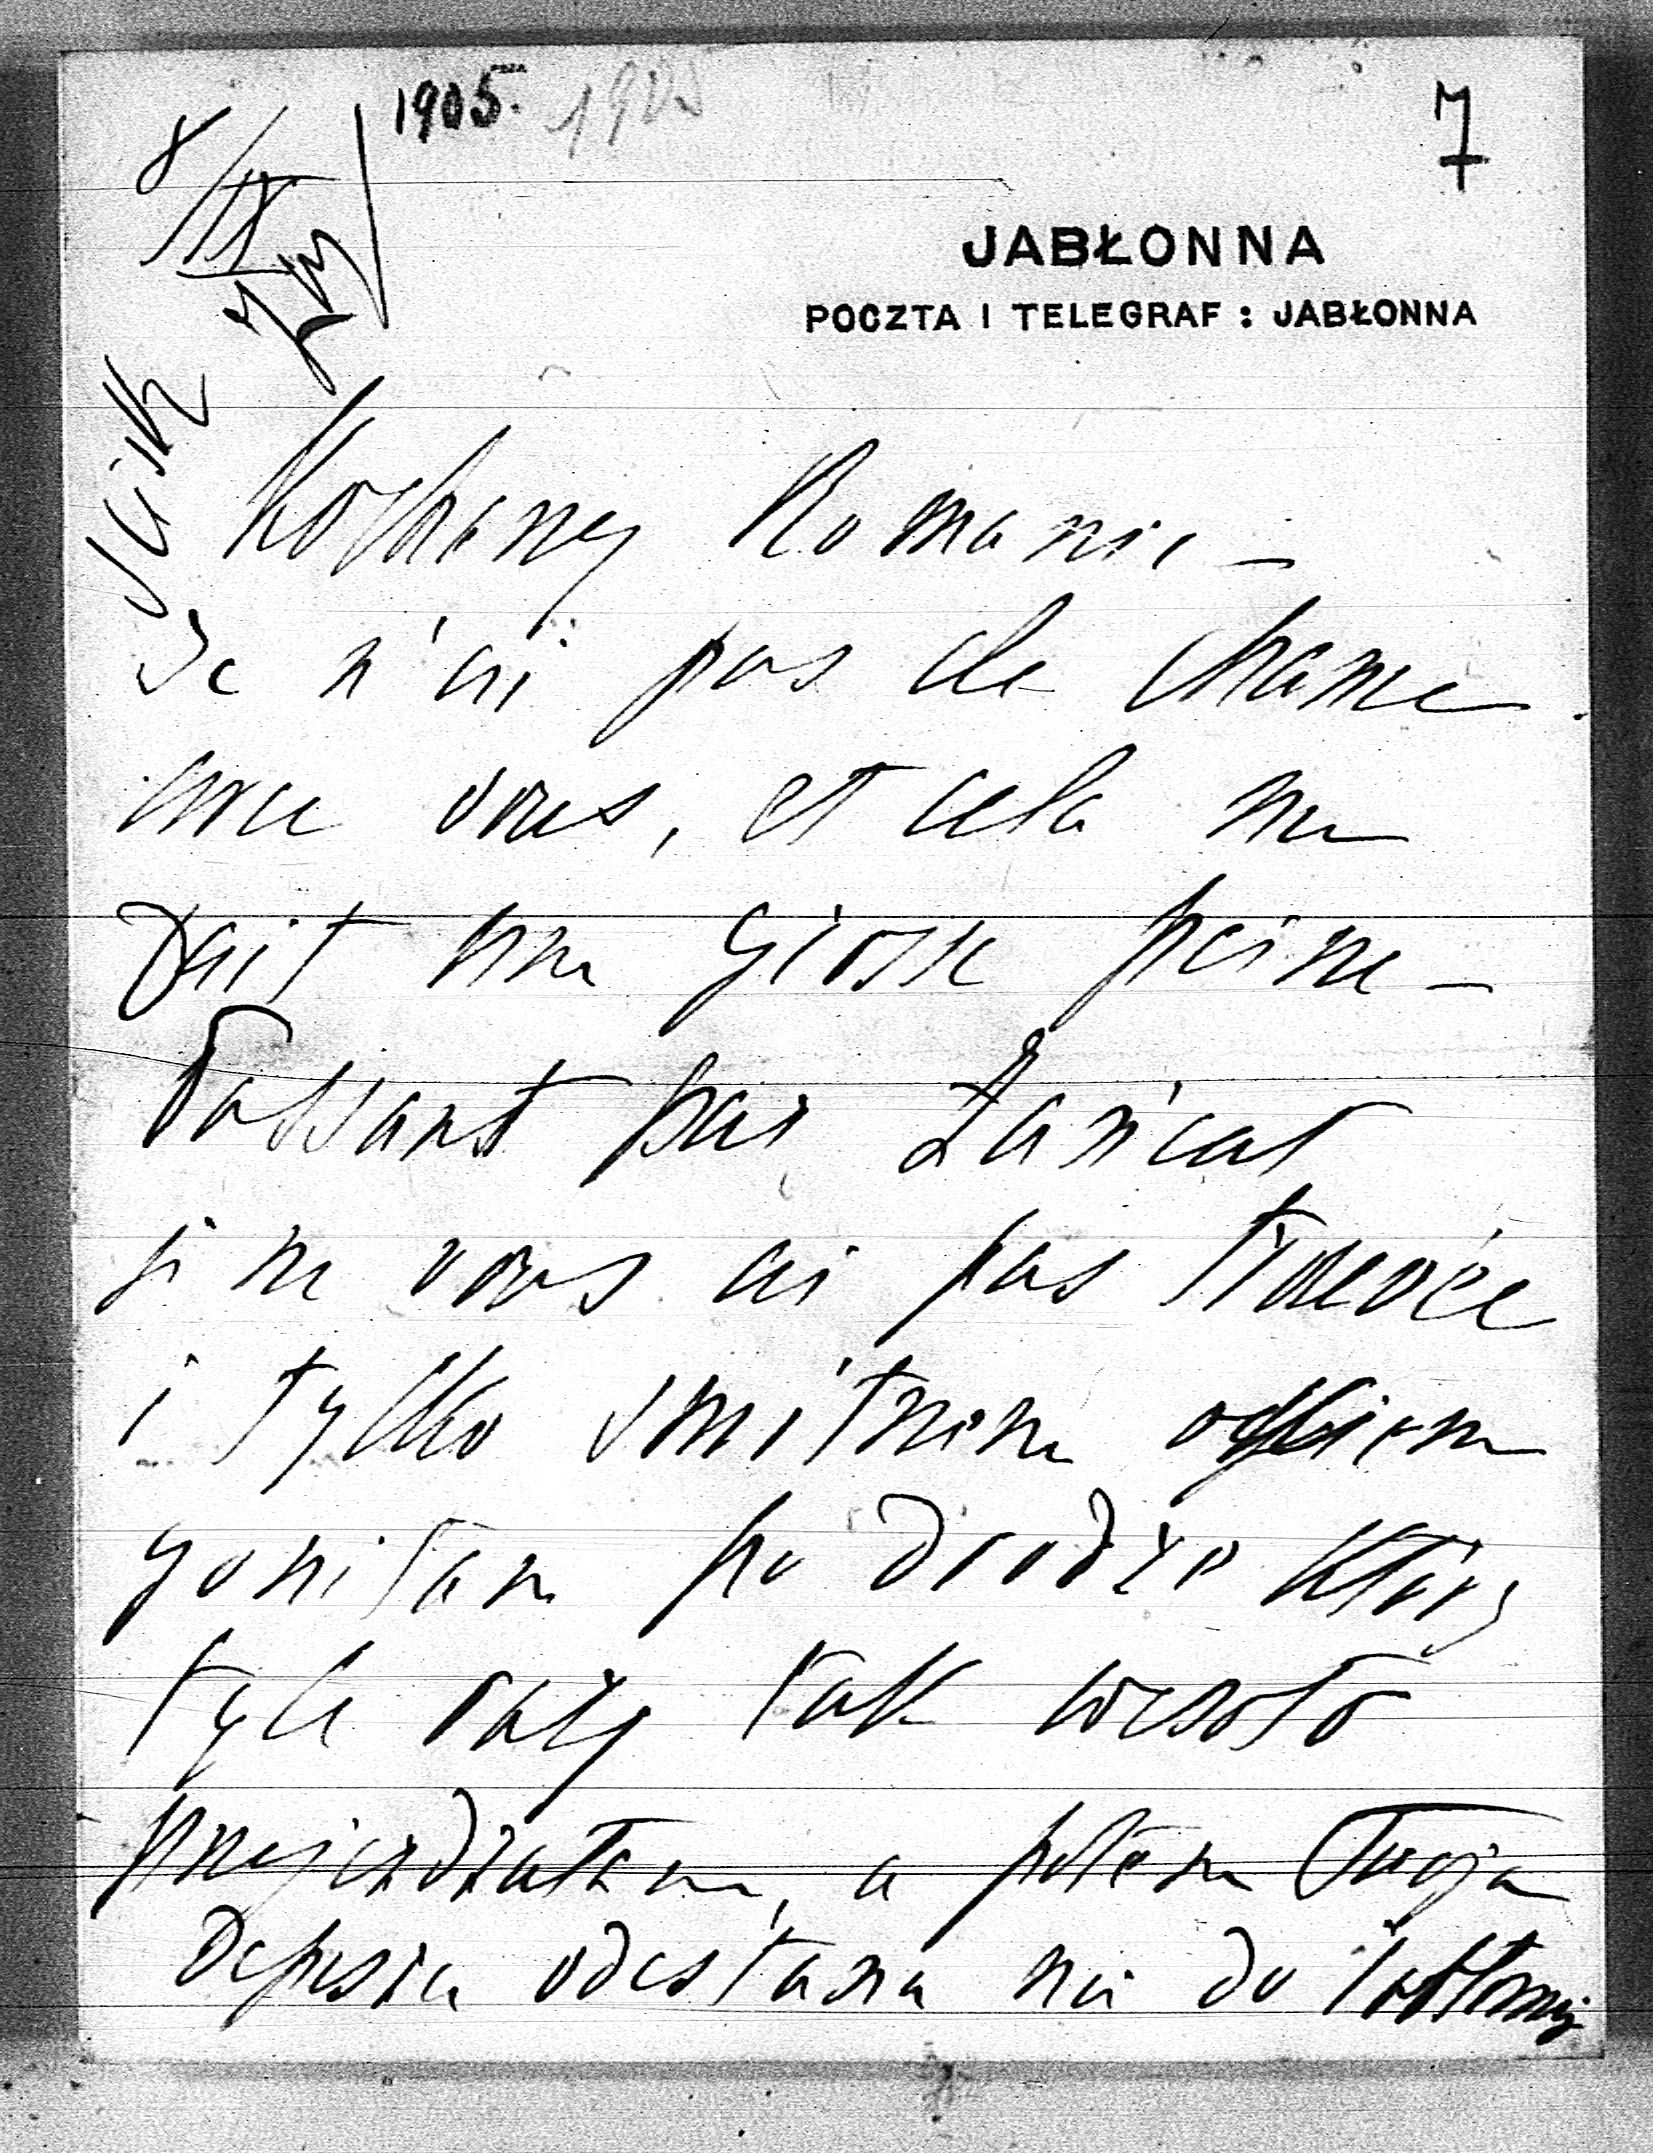 1905. 1905
7
8/IX
JABŁONNA
POCZTA I TELEGRAF : JABŁONNA
Kochany Romanie –
Je n'ai pas de chance
avec vous, et cela me
fait une grosse peine –
Passant par Łańcut
je ne vous ai pas trouvée
i tylko smutnem okiem
goniłam po drodze którą
tyle razy tak wesoło
przejeżdżałam, a potem Twoja
Depesza odesłana mi do Jabłonny